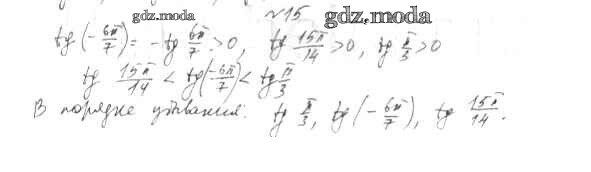 gdz.moda
№15
gdz.moda
tg (-6π/7) = -tg 6π/7 > 0, tg 15π/14 > 0, tg π/3 > 0
tg 15π/14 < tg(-6π/7) < tg π/3
В порядке убывания: tg π/3, tg (-6π/7), tg 15π/14.